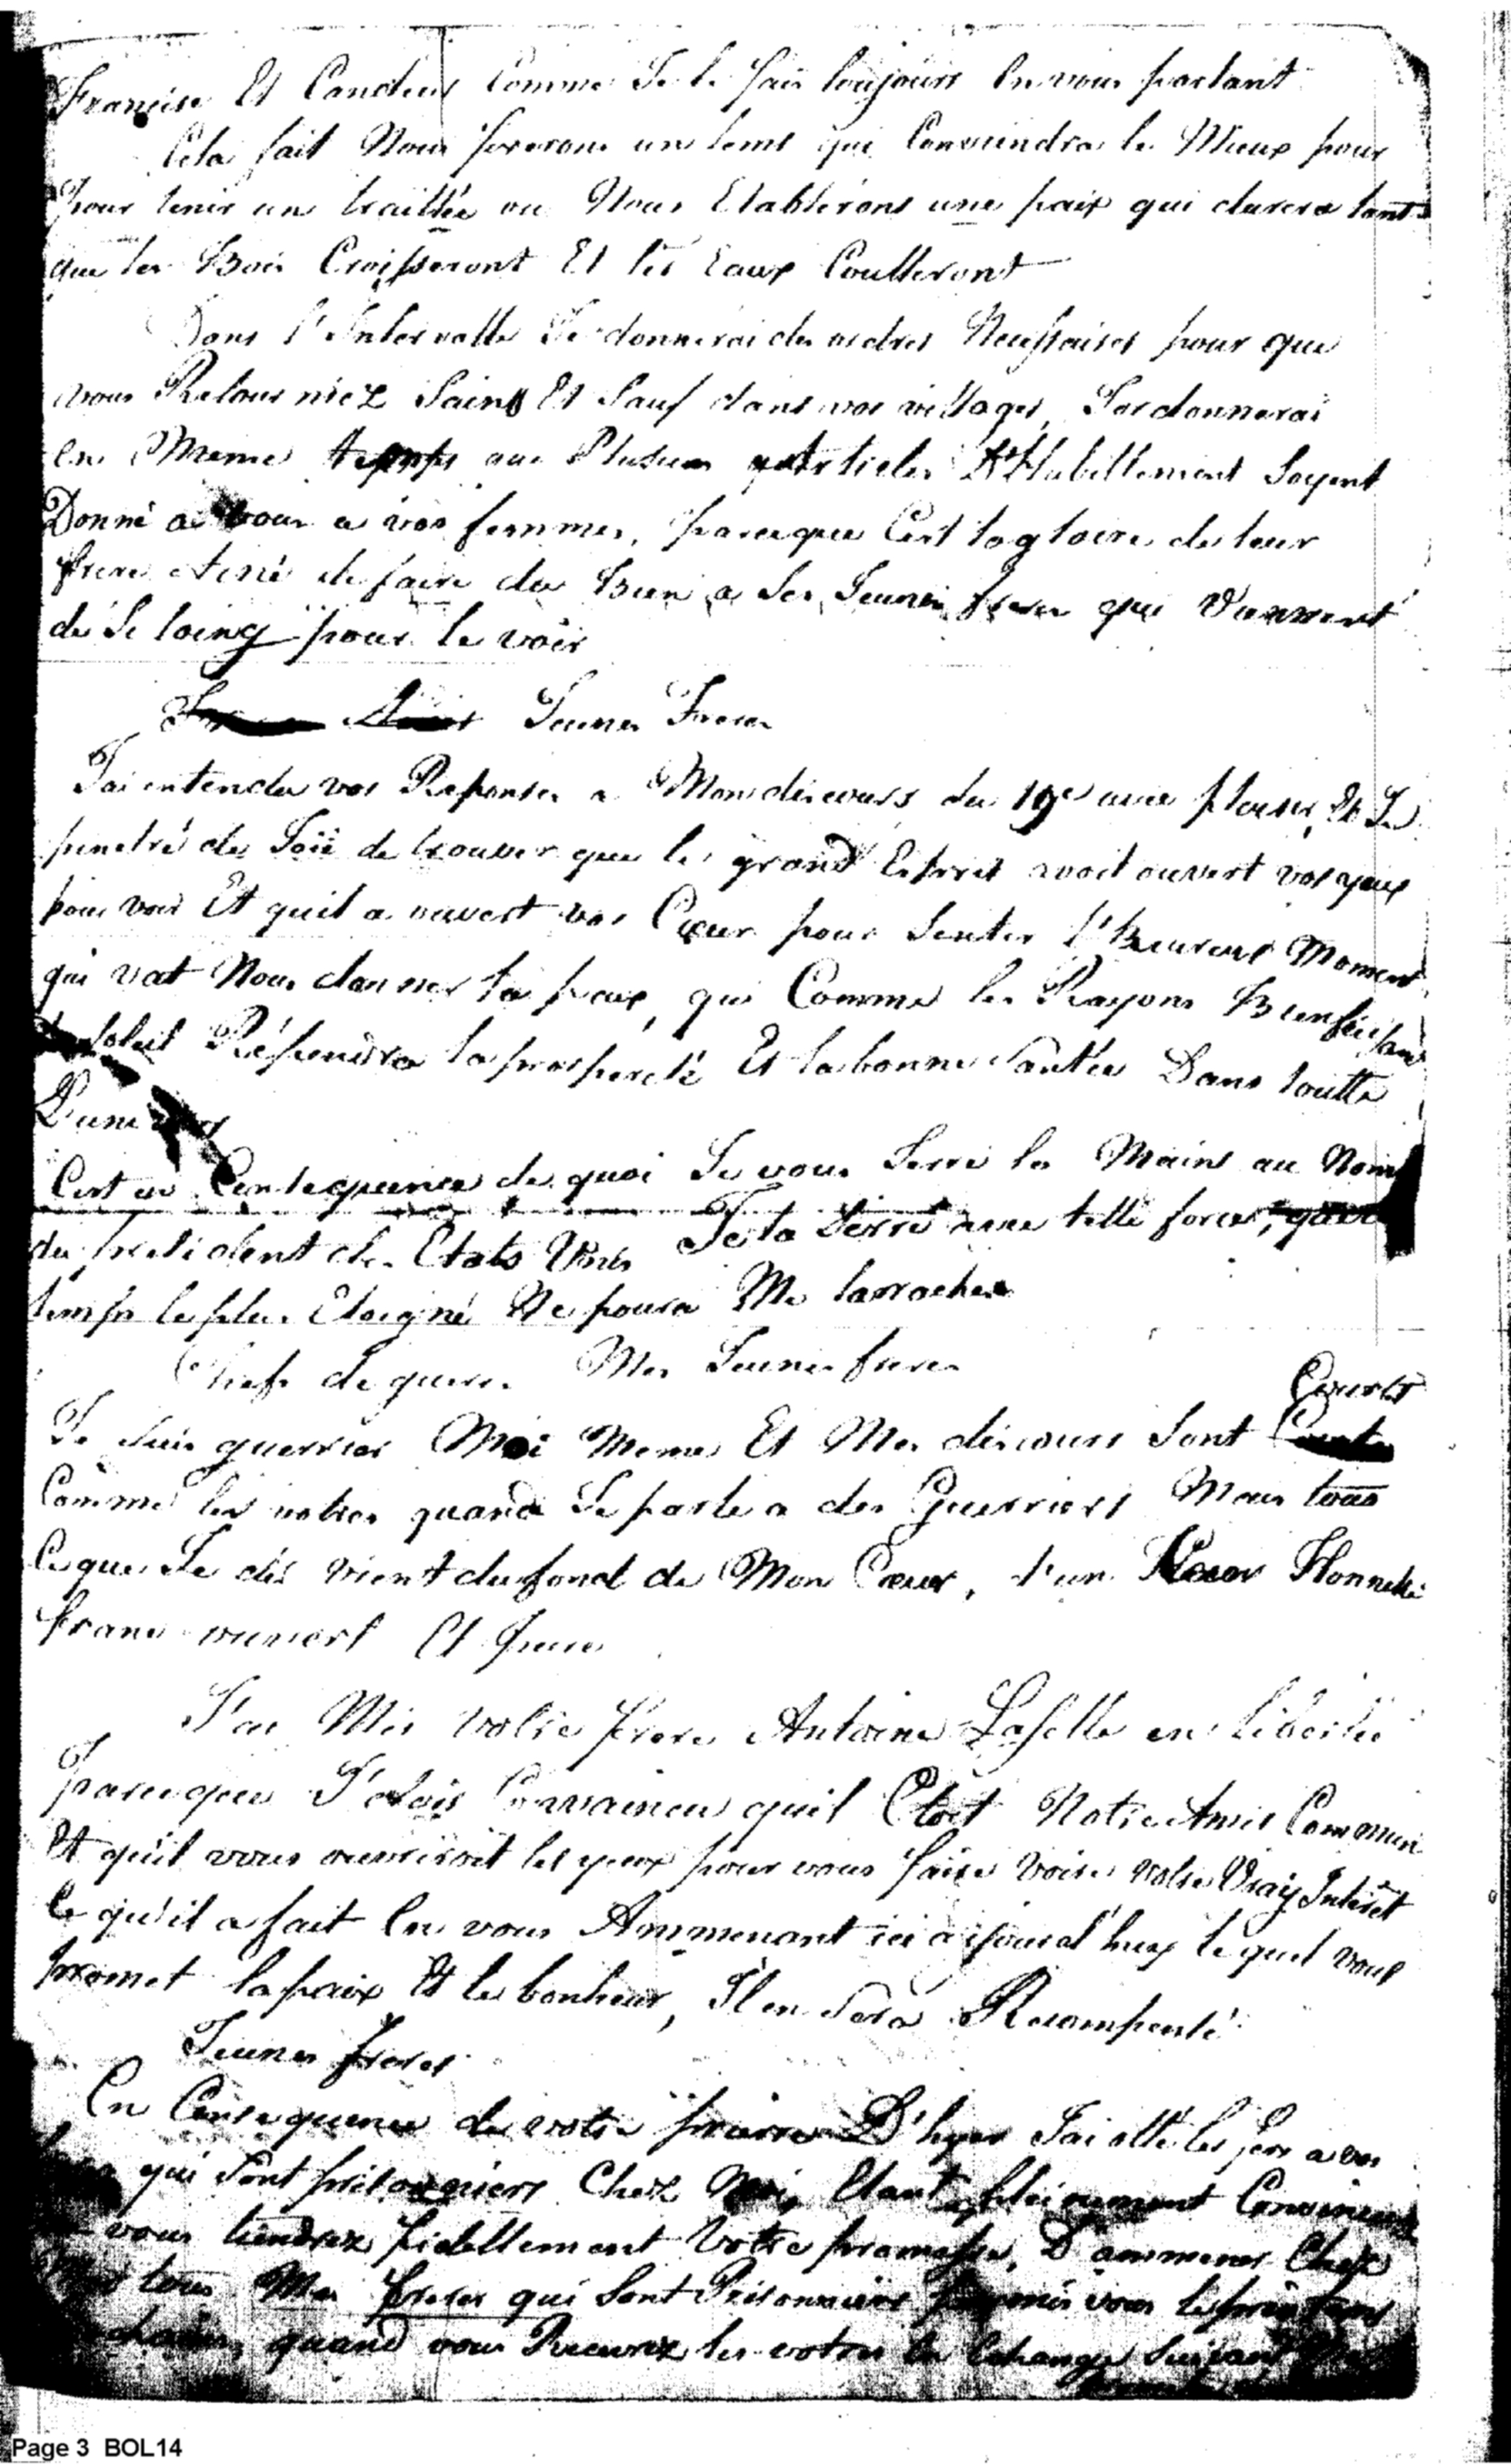 Francise Et Candeur Comme Je le fais toujours En vous parlant
Cela fait Nous fixerons un tems qui Conviendra le Mieux pour
pour tenir un traittée ou Nous Etablirons une paix qui durera tant
que les Bois Croisseront Et les Eaux Coulleront
Dans l'Intervalle Je donnerai des ordres Necessaires pour que
vous Retourniez Saint Et Sauf dans vos villages, J'ordonnerai
En Meme temps que Plusieurs Articles D'Habillement Soyent
Donné a vous a vos femmes, parceque C'est la gloire de leur
frere Ainé de faire du Bien a Ses Jeunes freres qui Viennent
de Si loing pour le voir
Jeunes Freres
J'ai entendu vos Reponses a Mon discours du 19e avec plaisir, Et Je
penetré de Joïe de trouver que le grand Esprit avoit ouvert vos yeux
pour voir Et quil a ouvert vos Cœur pour Sentir l'heureux Moment
qui vat Nous donner la paix, qui Comme les Rayons Bienfaisans
soleil Répendra la prosperité Et la bonne Santée Dans toutte
L'univers
C'est en Consequence de quoi Je vous Serre les Mains au Nom
du president des Etats Unis Je la Serre avec telle force, que le
temps le plus Eloigné Ne poura Me larracher
Chefs de guerre Mes Jeunes freres
Courts
Je suis guerrier Moi Meme Et Mes discours Sont
Comme les votres quand Je parle a des Guerriers Mais tous
Ce que Je dis vient du fond de Mon Cœur, d'un Cœur Honnete
franc ouvert Et
J'ai Mis votre frere Antoine Laselle en libertée
parceque J'etois Convaincu quil Etoit Notre Ami Commun
Et qu'il vous ouvriroit les yeux pour vous faire voire votre Vray Interêt
Ce qu'il a fait En vous Ammenant ici aujourd'huy le quel vous
promet la paix Et le bonheur, Il en Sera Recompensé
Jeunes freres
En Consequence de votre priere D'hyer J'ai otté les fers a vos
qui Sont prisonniers Chez Moi, Etant pleinement Convaincu
vous tiendrez fidellement Votre promesse, D'ammener Chez
tous Mes freres qui Sont Prisonniers parmis vous le printems
quand vous Recevrez les votres En Echange Suivant
Page 3 BOL14